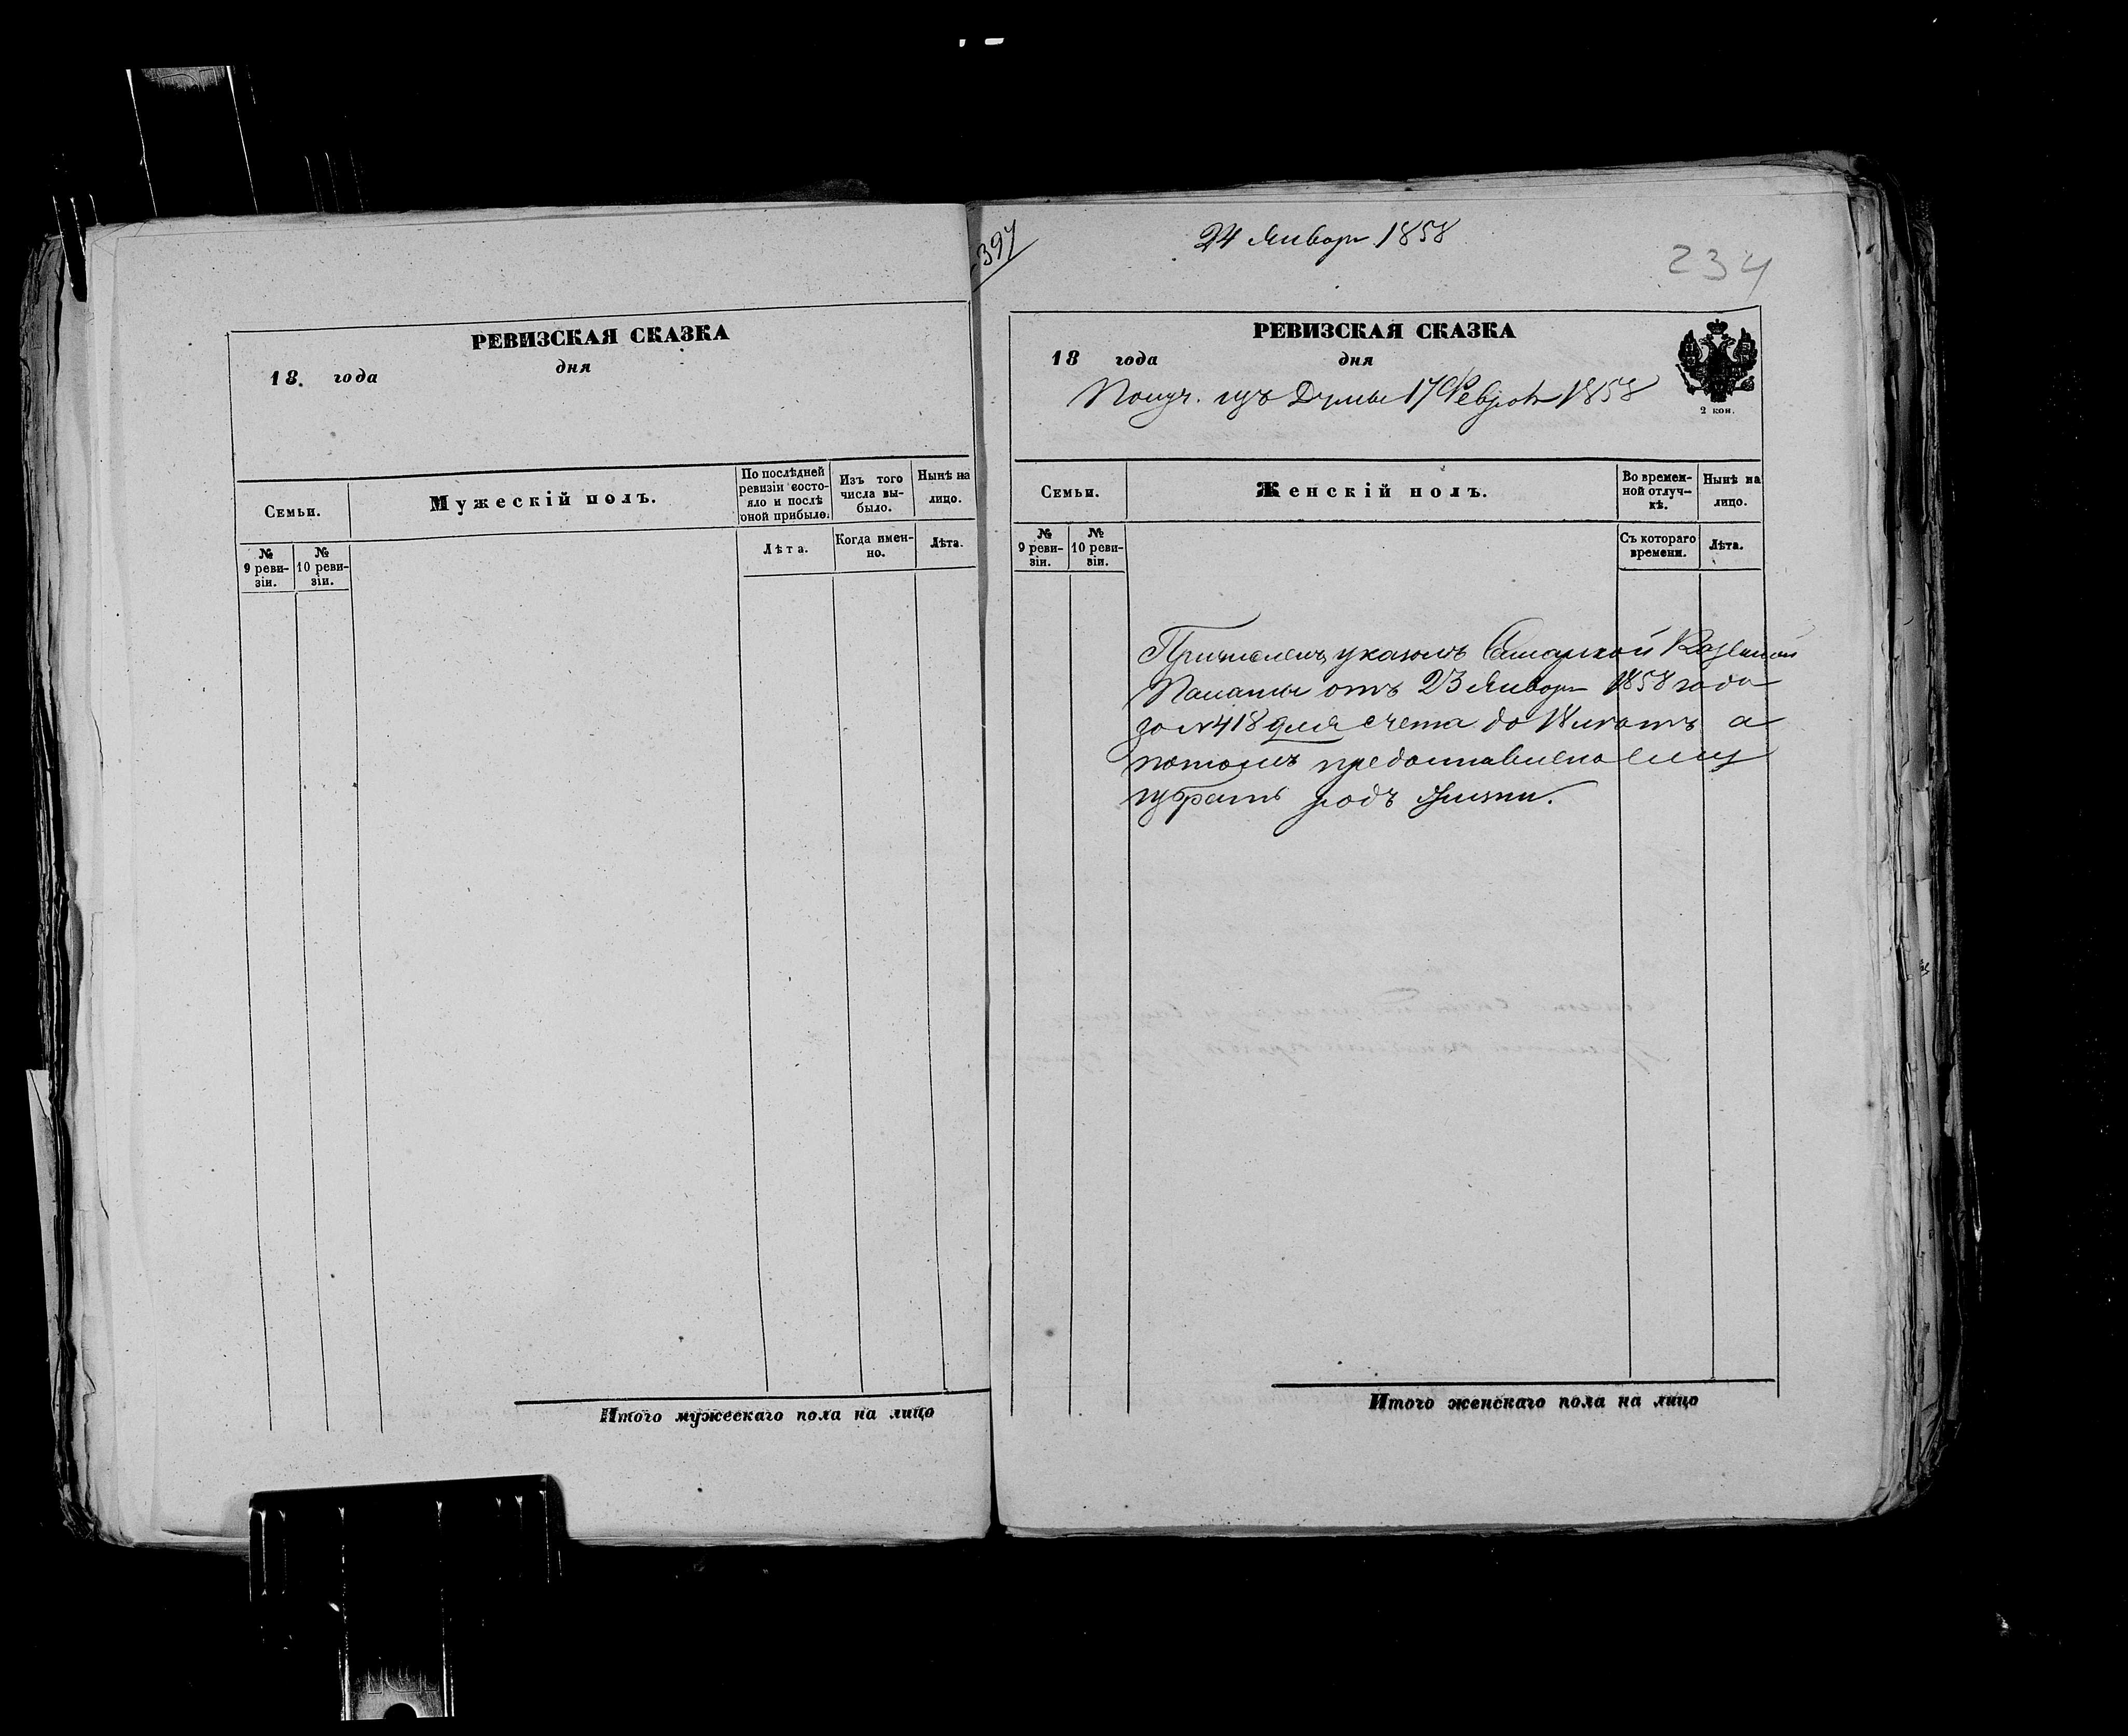 РЕВИЗСКАЯ СКАЗКА
18. года дня
Семьи.
Мужескій полъ.
По послѣдней ревизіи состояло и послѣ оной прибыло.
Изъ того числа выбыло.
Нынѣ на лицо.
№ 9 ревизіи.
№ 10 ревизіи.
Лѣта.
Когда именно.
Лѣта.
Итого мужескаго пола на лицо
397
24 Января 1858
234
РЕВИЗСКАЯ СКАЗКА
18 года дня
2 коп.
Получ. изъ Думы 17 Февраля 1858
Семьи.
Женскій полъ.
Во временной отлучкѣ.
Нынѣ на лицо.
№ 9 ревизіи.
№ 10 ревизіи.
Съ котораго времени.
Лѣта.
Причисленъ указомъ Самарской Казенной
Палаты отъ 23 Января 1858 года
за №418 для счета до 18 лѣтъ а
потомъ предоставлено ему
избрать родъ жизни.
Итого женскаго пола на лицо